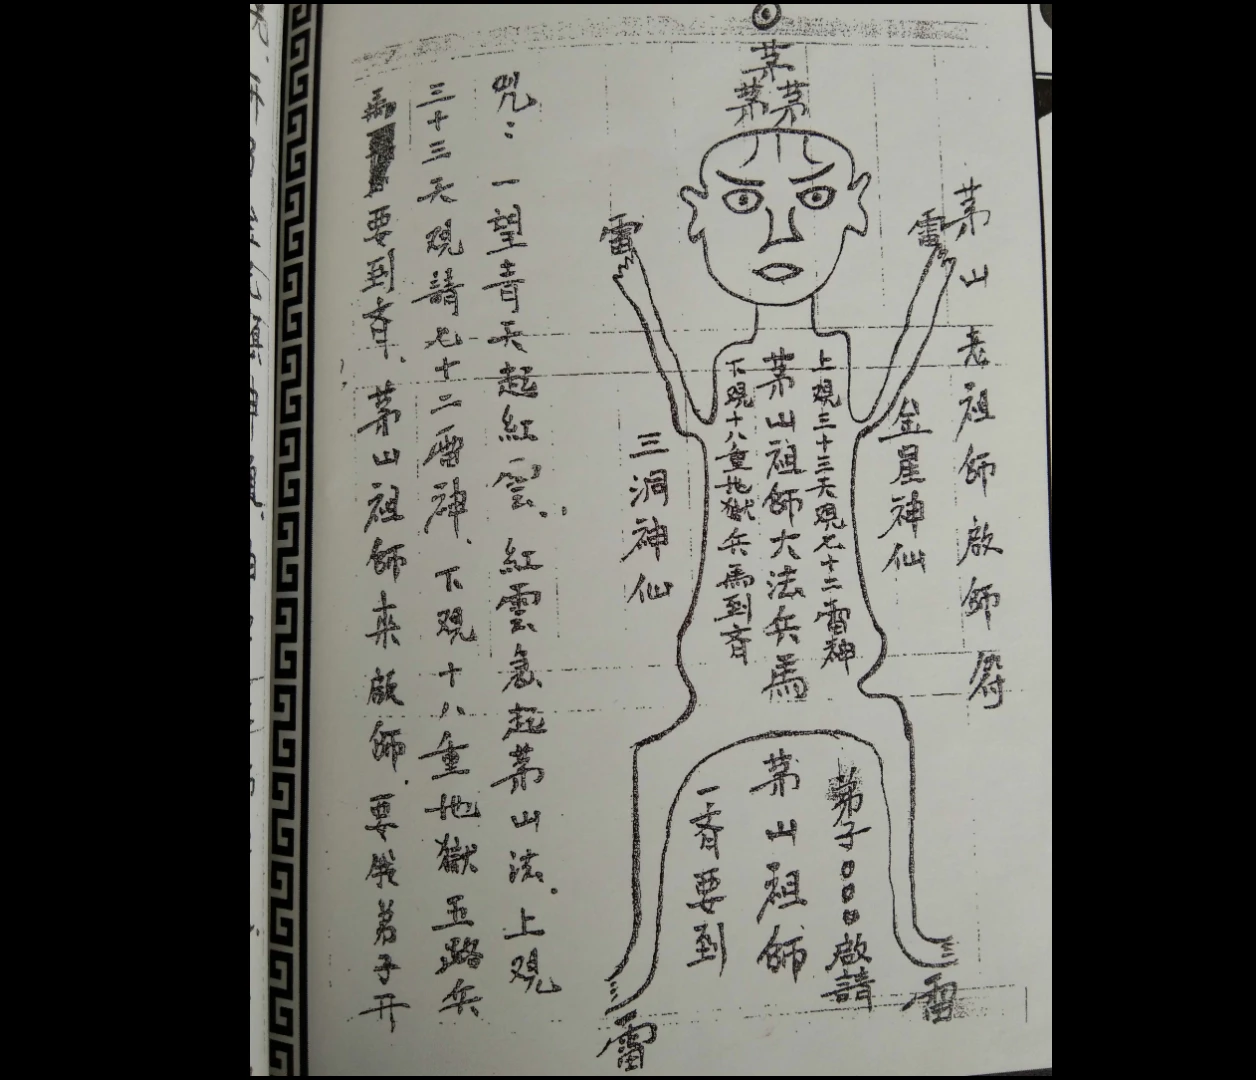 茅山老祖師啟師符
茅
茅茅
雷
雷
金星神仙
上觀三十三天觀七十二雷神
茅山祖師大法兵馬
下觀十八重地獄兵馬到齊
三洞神仙
弟子○○○啟請
茅山祖師
一齊要到
雷
雷
咒：一望青天起紅雲．紅雲急起茅山法．上觀
三十三天觀請七十二雷神．下觀十八重地獄五路兵
馬要到齊．茅山祖師来啟師．要俄弟子开